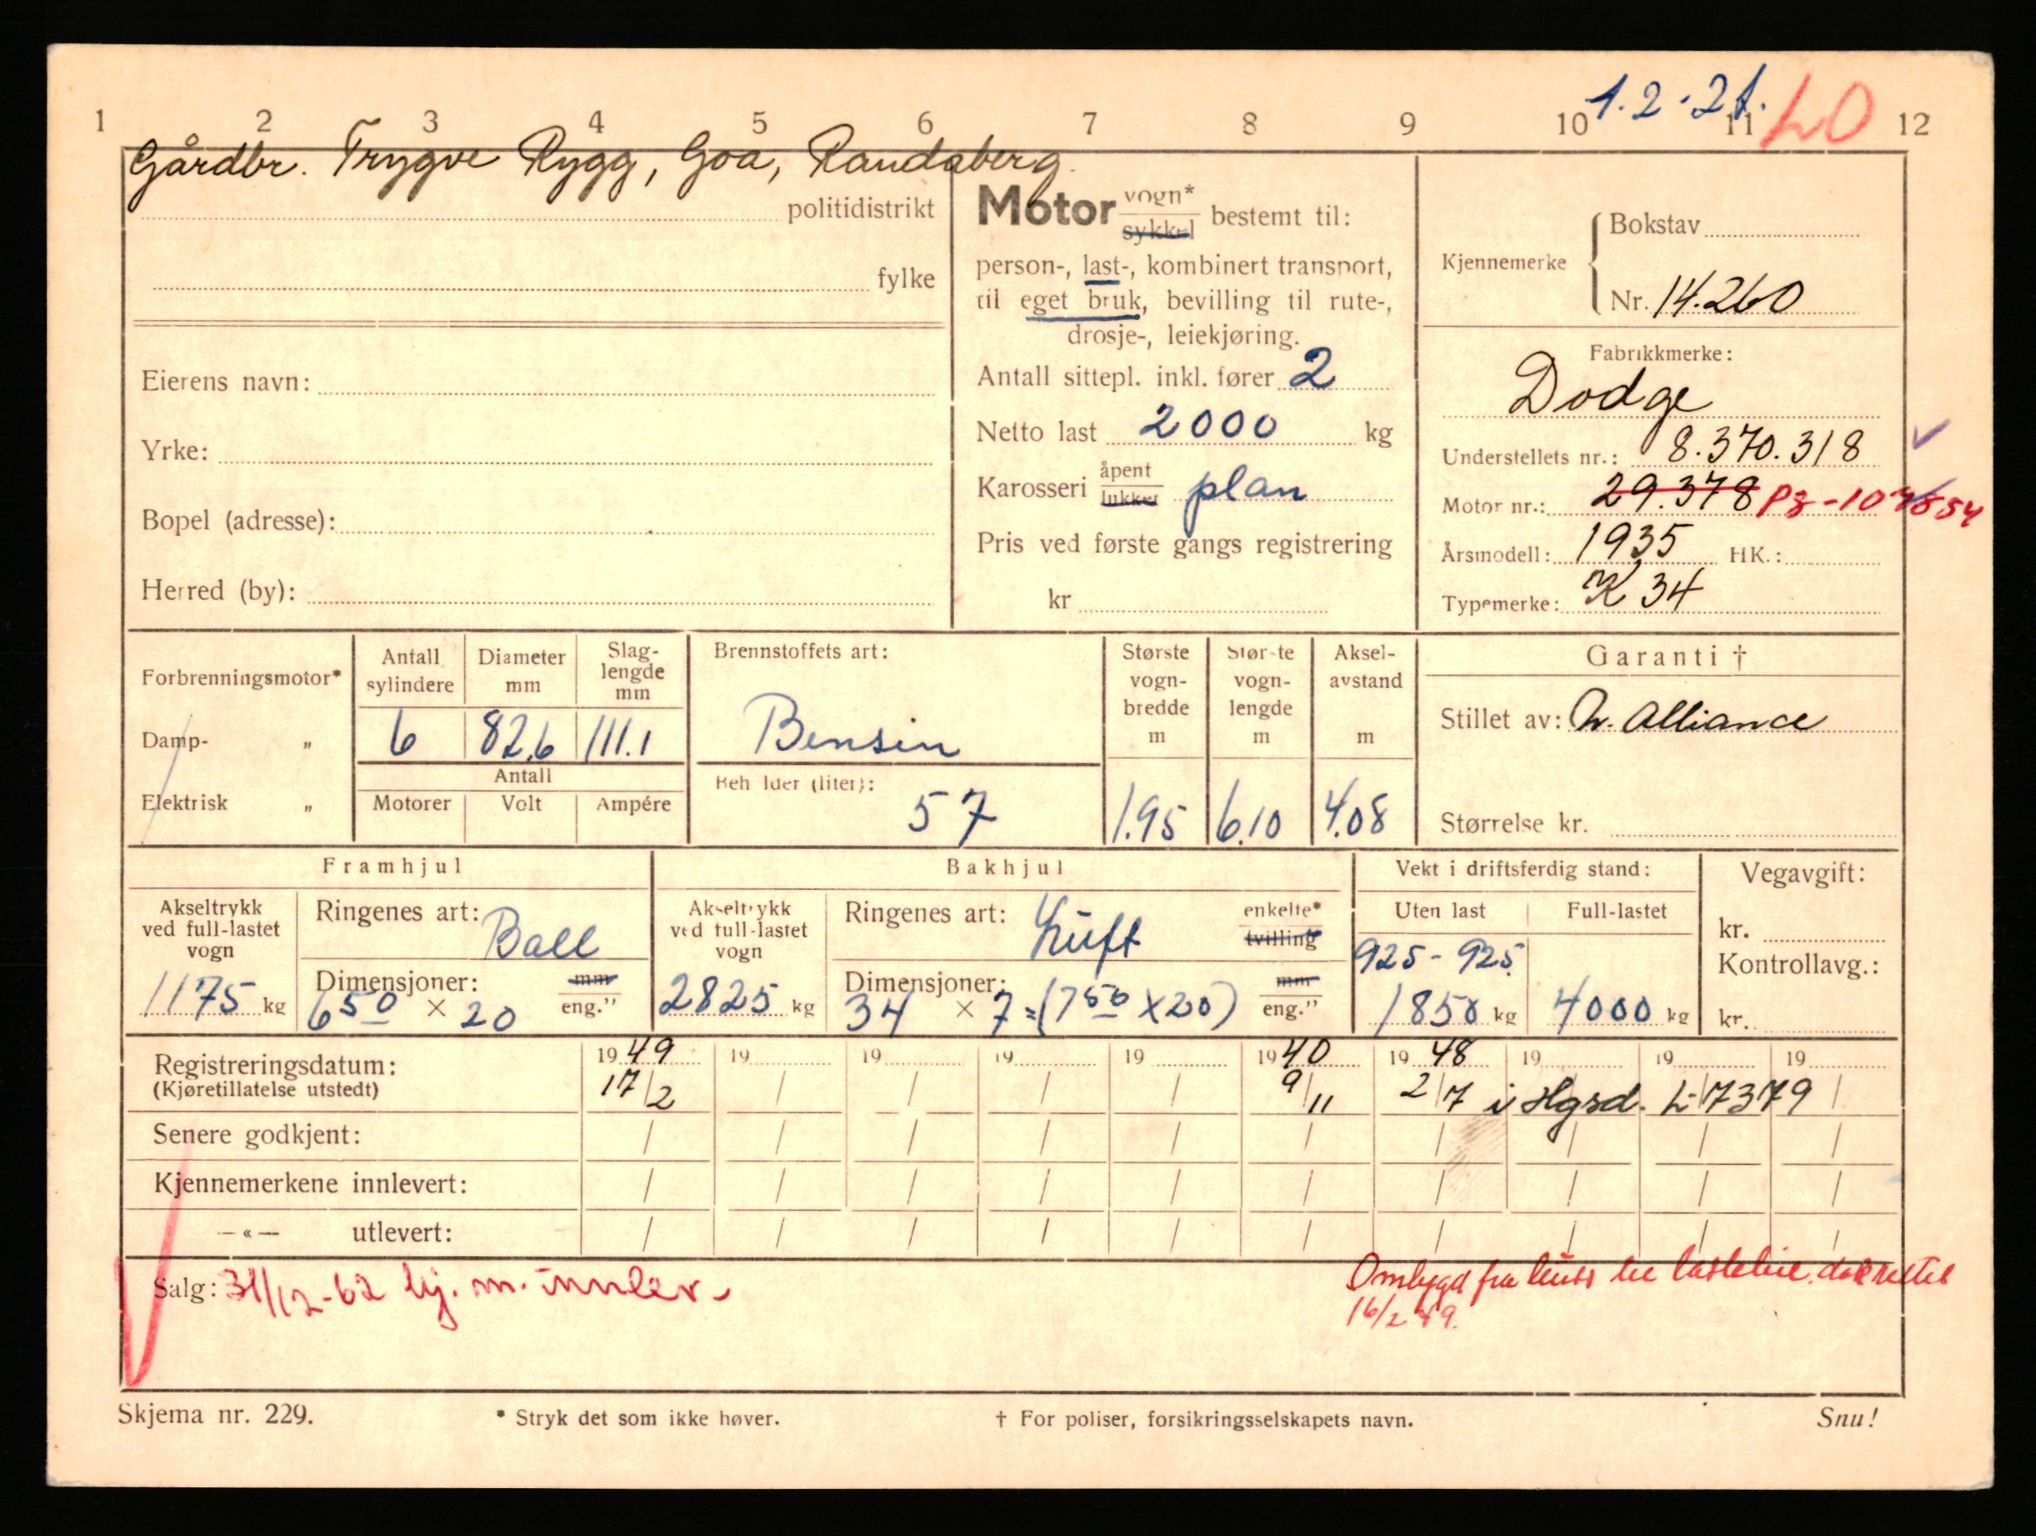 1.2.21. LO
1 2 3 4 5 6 7 8 9 10 11 12
Gårdbr. Trygve Rygg, Goa, Randaberg.
politidistrikt
fylke
Eierens navn:
Yrke:
Bopel (adresse):
Herred (by):
Motor vogn* sykkel bestemt til:
person-, last-, kombinert transport,
til eget bruk, bevilling til rute-,
drosje-, leiekjøring.
Antall sittepl. inkl. fører 2
Netto last 2000 kg
Karosseri åpent lukket plan
Pris ved første gangs registrering
kr
Kjennemerke
Bokstav
Nr. 14.260
Fabrikkmerke:
Dodge
Understellets nr.: 8.370.318
Motor nr.: 29.378
Årsmodell: 1935 HK.:
Typemerke: K 34
Forbrenningsmotor*
Damp- „
Elektrisk „
Antall sylindere
6
Diameter mm
82,6
Slag-lengde mm
111.1
Antall
Motorer Volt Ampére
Brennstoffets art:
Bensin
Beholder (liter):
57
Største vogn-bredde m
1.95
Største vogn-lengde m
6.10
Aksel-avstand m
4.08
Garanti †
Stillet av: N. Alliance
Størrelse kr.
Framhjul
Akseltrykk ved full-lastet vogn
1175 kg
Ringenes art: Ball
Dimensjoner: mm
650 × 20 eng."
Bakhjul
Akseltrykk ved full-lastet vogn
2825 kg
Ringenes art: Luft enkelte* tvilling
Dimensjoner: mm
34 × 7 = (750 x 20) eng."
Vekt i driftsferdig stand:
Uten last Full-lastet
925 - 925
1850 kg 4000 kg
Vegavgift:
kr.
Kontrollavg.:
kr.
Registreringsdatum: 1949 19 19 19 19 1940 1948 19 19 19
(Kjøretillatelse utstedt) 17/2 9/11 2/7 i Hgsd. L-7379
Senere godkjent:
Kjennemerkene innlevert:
—«— utlevert:
Salg: 31/12-62 kj. m. innlev.
Ombygd fra buss til lastebil.
16/2 49.
Skjema nr. 229.
* Stryk det som ikke høver.
† For poliser, forsikringsselskapets navn.
Snu!